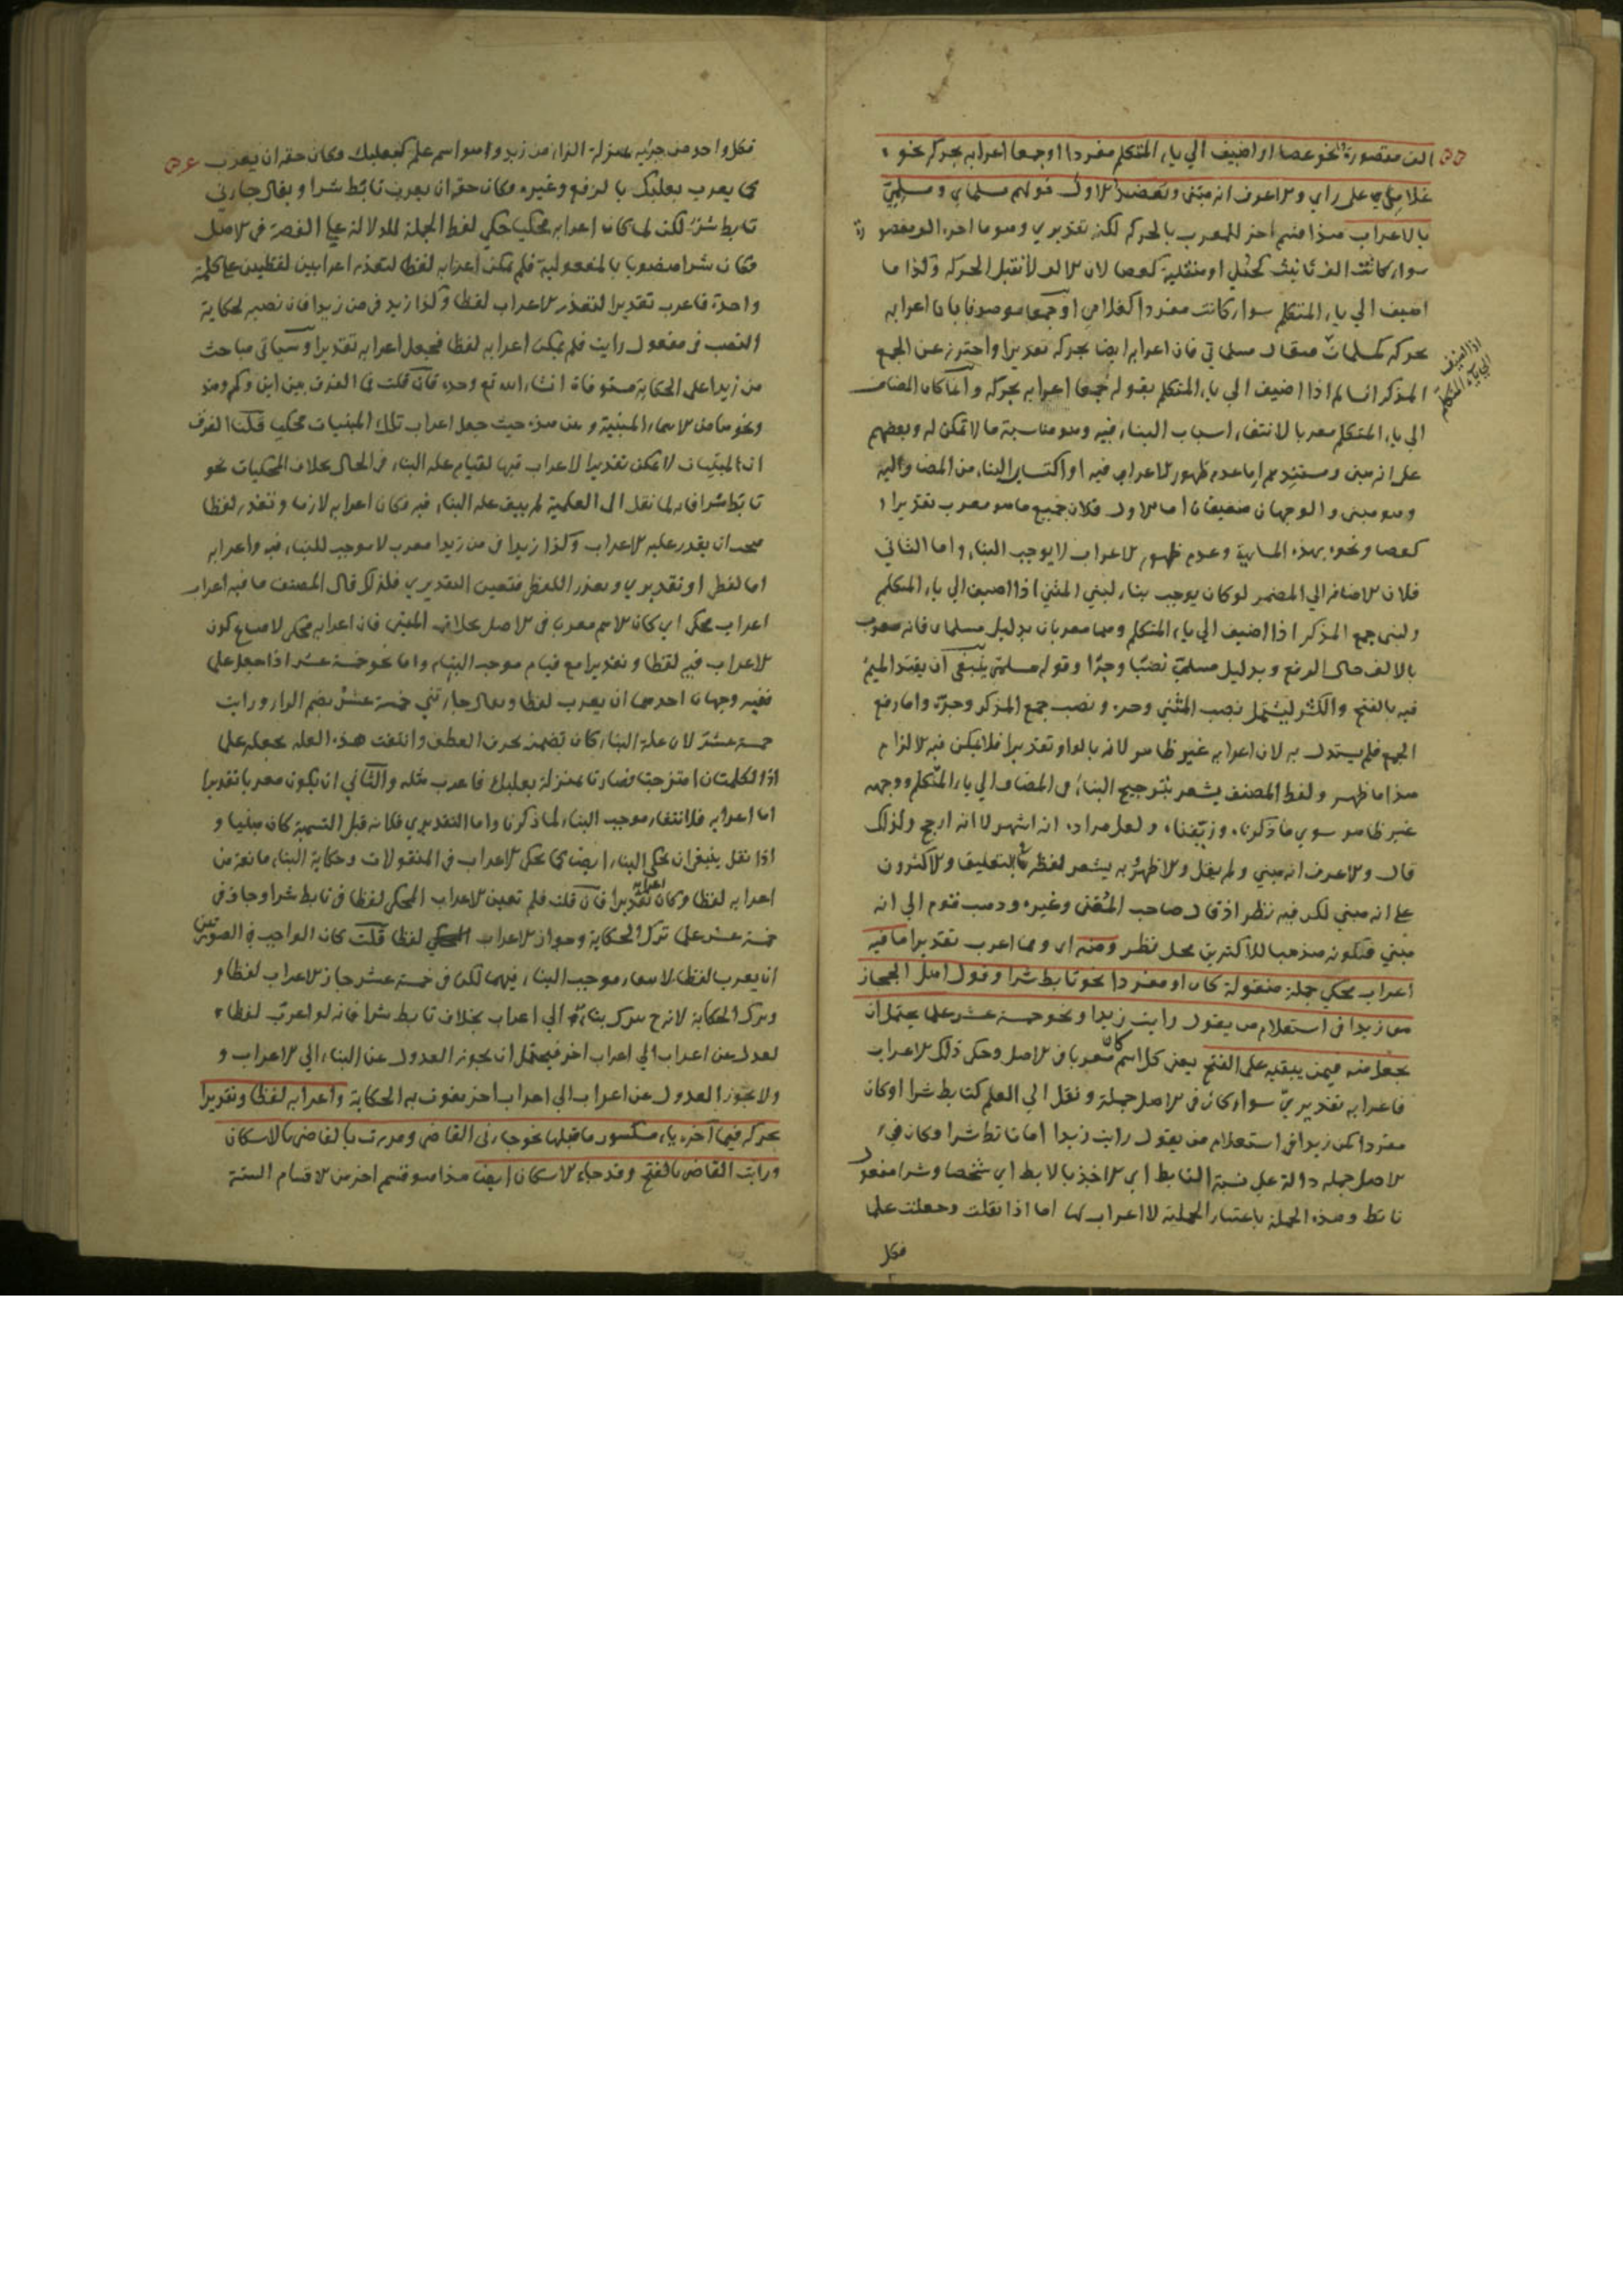 الف مقصورة نحو عصا او اضيف الي ياء المتكلم مفردا او جمعا اعرابه بحركه نحو
غلامي علي راي والاعرف انه مبني وتعضيد الاول قولهم مسلماي و مسلميّ
بالاعراب هذا قسم اخر للمعرب بالحركه لكنه تقديري وهو ما اخره الف مقصورة
سواء كانت الف تانيث كحبلى او منقلبة كعصا لان الالف لا تقبل الحركه وكذا ما
اضيف الي ياء المتكلم سواء كانت مفردا كغلامي او جمعا موصوفا بان اعرابه
بحركه كمسلمات فيقال مسلماتي فان اعرابه ايضا بحركه تقديرا واحترز عن الجمع
اذا اضيف
الي ياء المتكلم
المذكر السالم اذا اضيف الي ياء المتكلم بقوله جمعا اعرابه بحركه وانما كان المضاف
الي ياء المتكلم معربا لانتفاء اسباب البناء فيه وهو مناسبة ما لا تمكن له وبعضهم
علي انه مبني ومستندهم اما عدم ظهور الاعراب فيه او اكتساب البناء من المضاف اليه
وهو مبني والوجهان ضعيفان اما الاول فلان جميع ما هو معرب تقديرا
كعصا ونحوه بهذه المثابة وعدم ظهور الاعراب لا يوجب البناء واما الثاني
فلان الاضافه الي المضمر لو كان يوجب بناء لبني المثني اذا اضيف الي ياء المتكلم
ولبني جمع المذكر اذا اضيف الي ياء المتكلم وهما معربان بدليل مسلماي فانه معرب
بالالف حال الرفع وبدليل مسلميّ نصبًا وجرًا وقوله مسلمي ينبغي ان يقيد الميم
فيه بالفتح والكسر ليشمل نصب المثني وجره ونصب جمع المذكر وجره واما رفع
الجمع فلم يستدل به لان اعرابه غير ظاهر لانه بالواو تقديرا فلا يمكن فيه الالزام
هذا ما ظهر ولفظ المصنف يشعر بترجيح البناء في المضاف الي ياء المتكلم ووجهه
غير ظاهر سوي ما ذكرناه وزيفناه ولعل مراده انه اشهر لا انه ارجح ولذلك
قال والاعرف انه مبني ولم يقل والاظهر به يشعر لفظه في التعليق والاكثرون
علي انه مبني لكن فيه نظر اذ قال صاحب المغني وغيره وذهب قوم الي انه
مبني فيكون مذهبا للاكثرين محل نظر ومنه اي ومما اعرب تقديرا ما فيه
اعراب محكي جملة منقولة كان او مفردا نحو تابط شرا وقول اهل الحجاز
من زيدا في استعلام من يقول رايت زيدا ونحو خمسة عشر علما يحتمل ان
يجعل منه فيمن يبقيه علي الفتح يعني كل اسم كان معربا في الاصل وحكي ذلك الاعراب
فاعرابه تقديريّ سواء كان في الاصل جملة ونقل الي العلم كتابط شرا او كان
مفردا كمن زيدا في استعلام من يقول رايت زيدا اما تابط شرا وكان في
الاصل جمله دالة علي نسبة التابط اي الاخذ بالابط اي شخصا وشرا مفعول
تابط وهذه الجملة باعتبار الجملية لا اعراب لها اما اذا نقلت وجعلت علما
فكل
فكل واحد من جزئيه بمنزلة الزاء من زيد وهو اسم علم كبعلبك فكان حقه ان يعرب
كما يعرب بعلبك بالرفع وغيره فكان حقه ان يعرب تابط شرا ويقال جاءني
تابط شرٌ لكن لما كان اعرابه محكيا حكي لفظ الجملة للدلالة علي القصة في الاصل
وكان شرا منصوبا بالمفعولية فلم يمكن اعرابه لفظا لتعذر اعرابين لفظيين علي كلمة
واحدة فاعرب تقديرا لتعذر الاعراب لفظا وكذا زيد في من زيدا فان نصبه لحكاية
النصب في مفعول رايت فلم يمكن اعرابه لفظا فيجعل اعرابه تقديرا وسياتي مباحث
من زيدا علي الحكاية مستوفاة انشاء الله تع وحده فان قلت فما الفرق بين اين وكم ومنذ
ونحوها من الاسماء المبنية وعن هذه حيث جعل اعراب تلك المبنيات محكي قلنا الفرق
ان المبنيات لا يمكن تقديرا لاعراب فيها لقيام علة البناء في الحال بخلاف المحكيات نحو
تابط شرا فانه لما نقل الي العلمية لم يبق علة البناء فيه فكان اعرابه لازما وتعذر لفظا
فيجب ان يقدر عليه الاعراب وكذا زيدا في من زيدا معرب لا موجب للبناء فيه واعرابه
اما لفظي او تقديري وتعذر اللفظي فتعين التقديري فلذلك قال المصنف ما فيه اعراب
اعراب محكي اي كان الاسم معربا في الاصل بخلاف المبني فان اعرابه محكي لامتناع كون
الاعراب فيه لفظا وتقديرا مع قيام موجب البناء واما نحو خمسة عشر اذا جعل علما
ففيه وجهان احدهما ان يعرب لفظا ويقال جاءني خمسة عشرُ بضم الراء ورايت
خمسة عشرَ لان علة البناء كان تضمن بحرف العطف وانتفت هذه العلة بجعله علما
اذ الكلمتان امتزجتا فصارتا بمنزلة بعلبك فاعرب مثله والثاني ان يكون معربا تقديرا
اما اعرابه فلانتفاء موجب البناء لما ذكرنا واما التقديري فلانه قبل التسمية كان مبنيا و
اذا نقل ينبغي ان يحكي البناء ايضا كما يحكي الاعراب في المنقولات وحكاية البناء مانعة من
اعرابه لفظا وكان اعرابه تقديرا فان قلت فلم تعين الاعراب المحكي لفظا في تابط شرا وجاز في
خمسة عشر علي ترك الحكاية وجواز الاعراب لفظا قلت كان الواجب في الصورتين
ان يعرب لفظا لانتفاء موجب البناء فيهما لكن في خمسة عشر جاز الاعراب لفظا و
وترك الحكاية لانه ترك بناء الي اعراب بخلاف تابط شرا فانه لو اعرب لفظا
لعدل عن اعراب الي اعراب اخر فيحتمل ان يجوز العدول عن البناء الي الاعراب و
ولا يجوز العدول عن اعراب الي اعراب اخر يفوت به الحكاية واعرابه لفظا وتقديرا
بحركه فيما آخره ياء مكسور ما قبلها نحو جاءني القاضي ومررت بالقاضي بالاسكان
ورايت القاضي بالفتح وقد جاء الاسكان ايضا هذا هو قسم اخر من الاقسام الستة